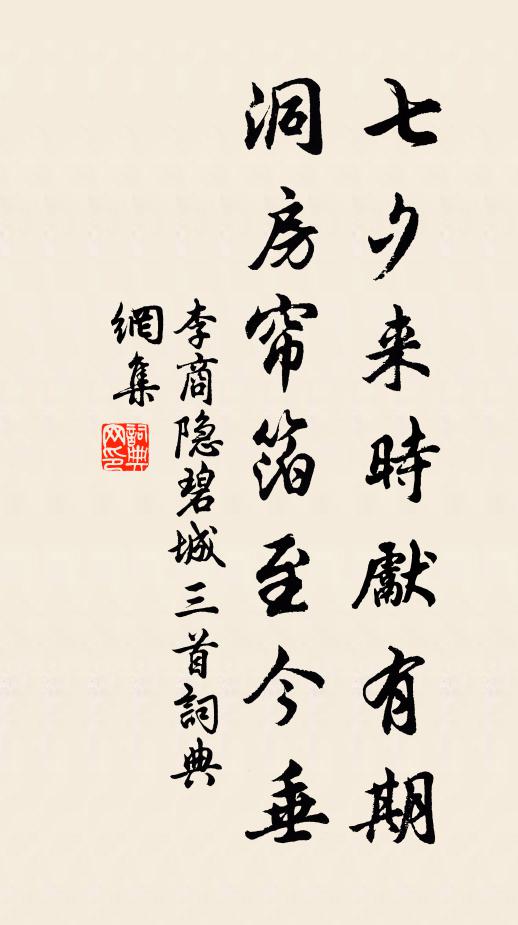 七夕来時獻有期
洞房帘箔至今垂
李商隐碧城三首詞典
網集
詞典
网印